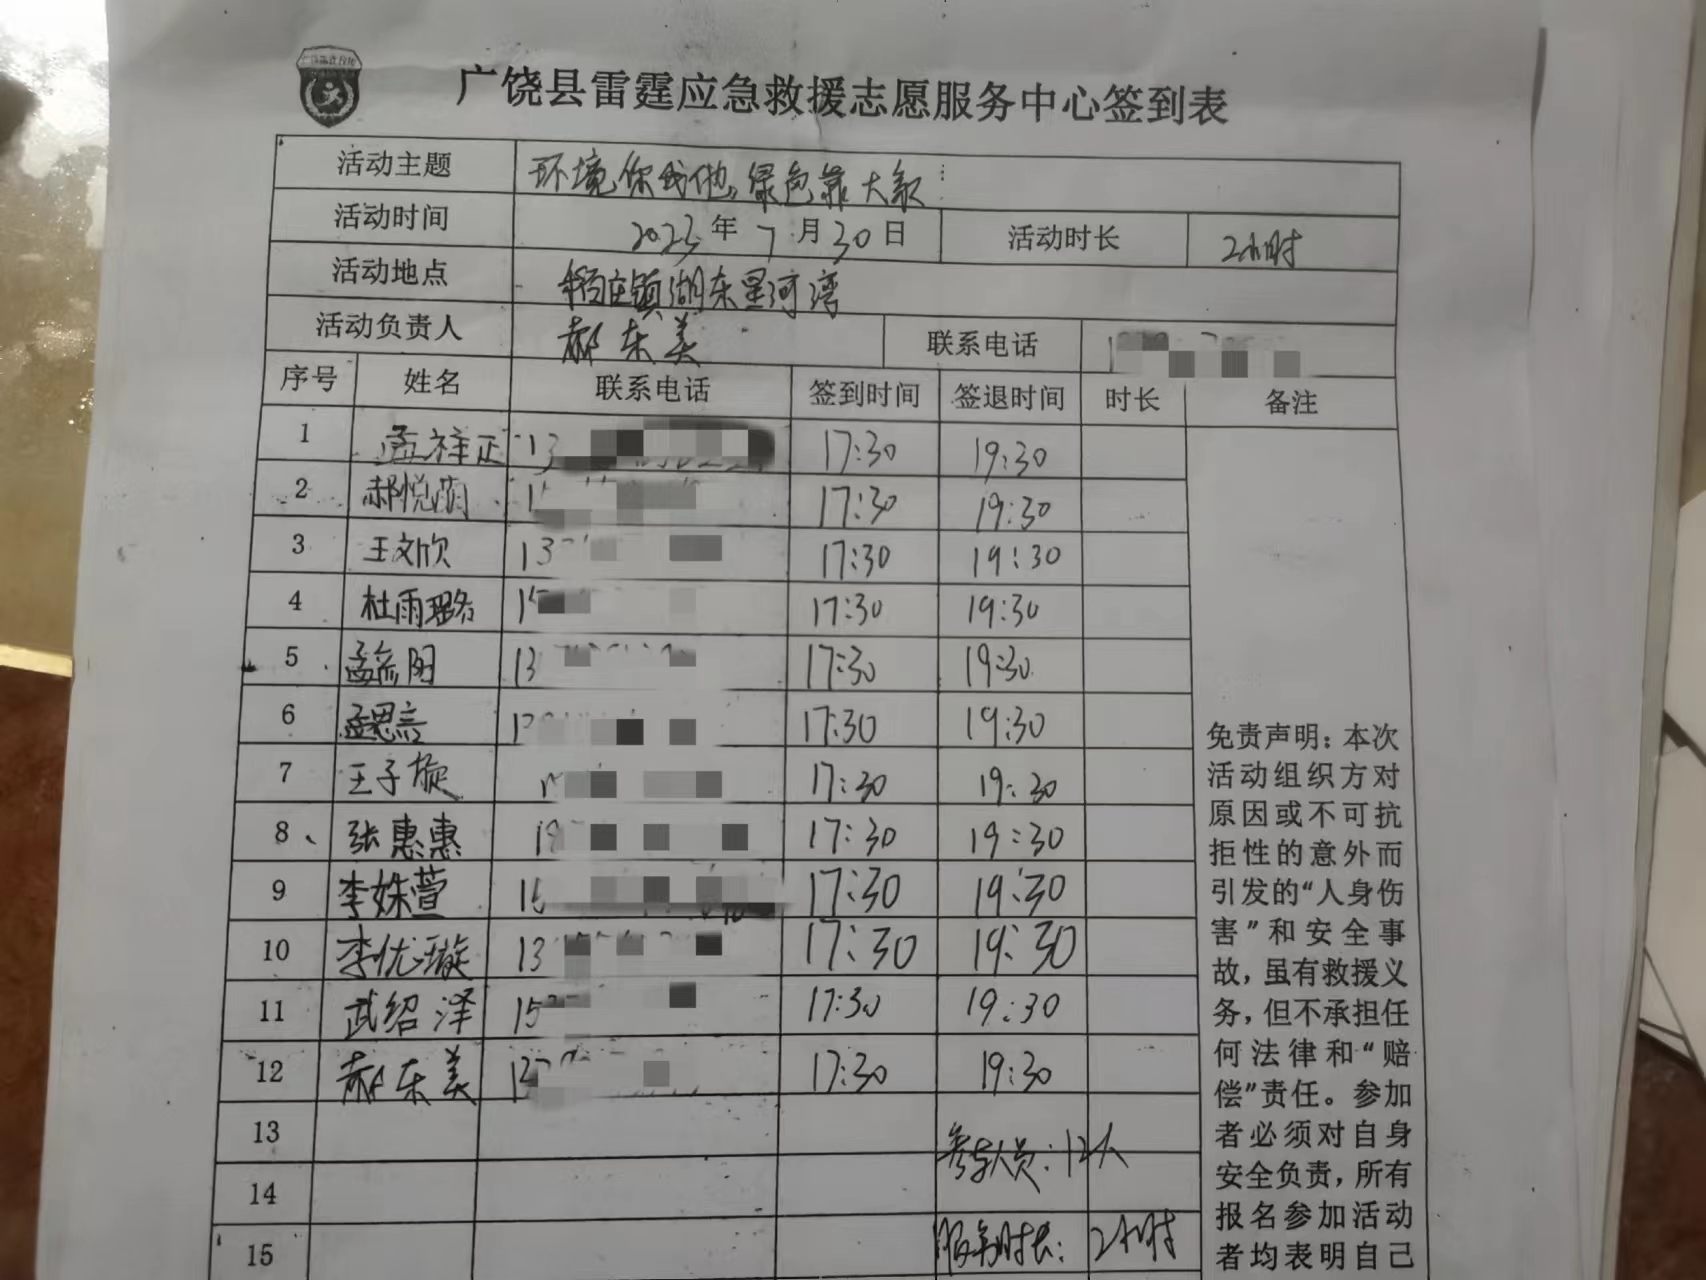 广饶县雷霆应急救援志愿服务中心签到表
活动主题 环境你我他,绿色靠大家
活动时间 2023年7月30日 活动时长 2小时
活动地点 稻庄镇湖东星河湾
活动负责人 郝东美 联系电话
序号 姓名 联系电话 签到时间 签退时间 时长 备注
1 孟祥正 13 17:30 19:30
2 郝悦 17:30 19:30
3 王文欣 13 17:30 19:30
4 杜雨璐 15 17:30 19:30
5 孟 阳 13 17:30 19:30
6 孟思言 17:30 19:30
7 王子旋 17:30 19:30
8 张惠惠 17:30 19:30
9 李姝萱 17:30 19:30
10 李优璇 13 17:30 19:30
11 武绍泽 15 17:30 19:30
12 郝东美 17:30 19:30
13 参与人员:12人
14
15 服务时长:2小时
免责声明:本次
活动组织方对
原因或不可抗
拒性的意外而
引发的“人身伤
害”和安全事
故,虽有救援义
务,但不承担任
何法律和“赔
偿”责任。参加
者必须对自身
安全负责,所有
报名参加活动
者均表明自己